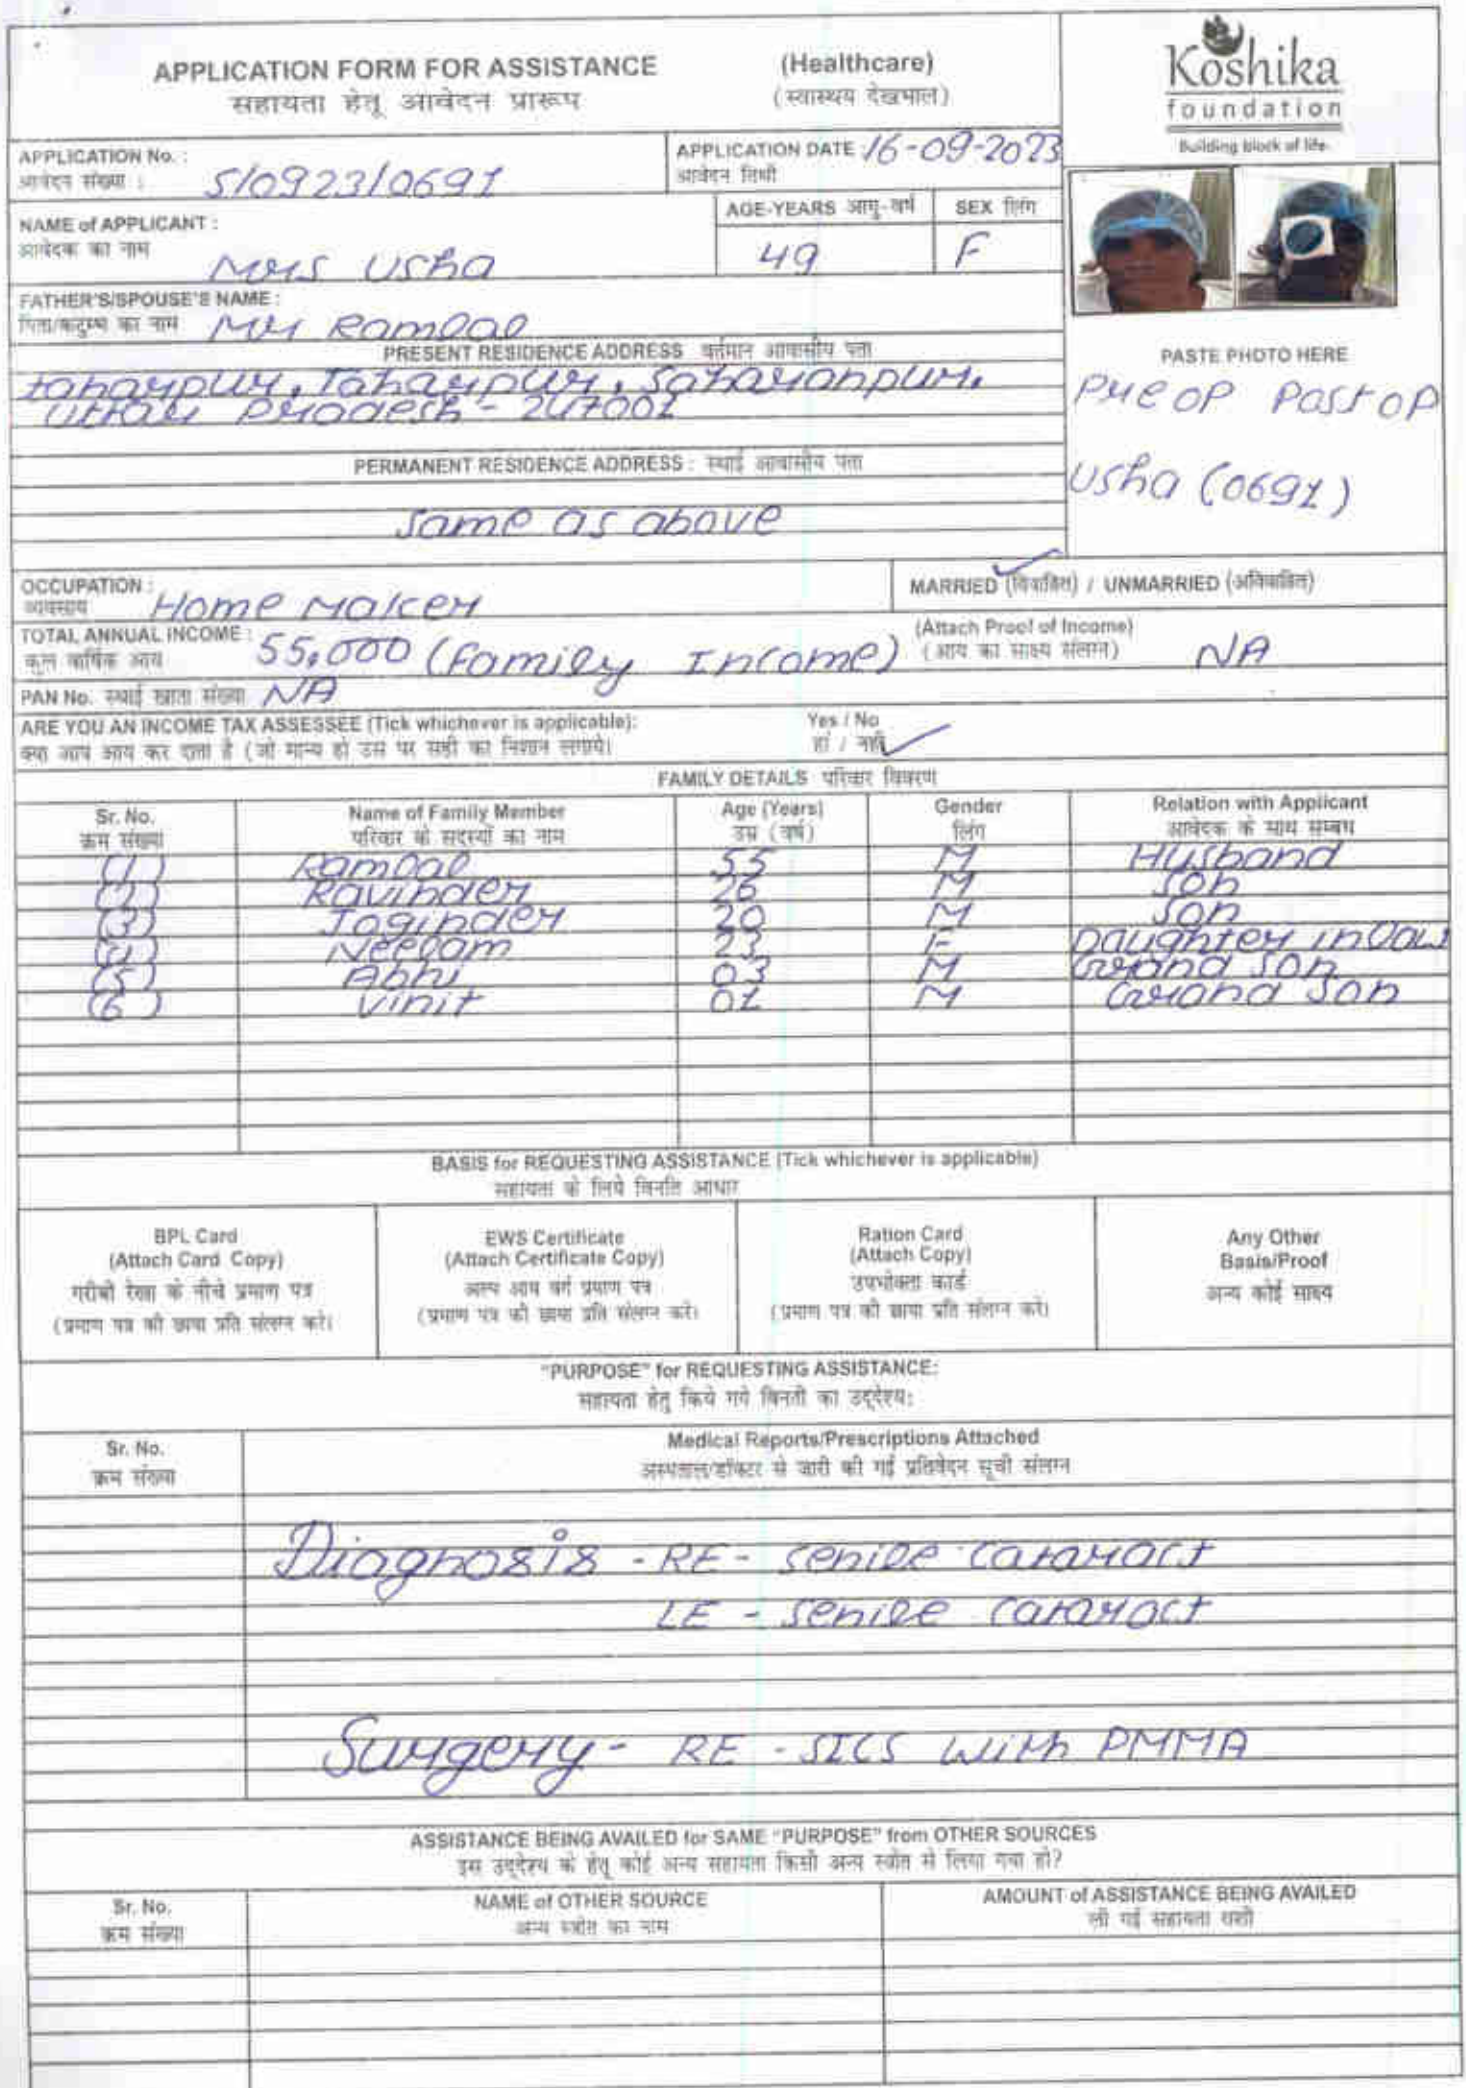 APPLICATION FORM FOR ASSISTANCE (Healthcare)
सहायता हेतू आवेदन प्रारूप (स्वास्थय देखभाल)
Koshika
foundation
Building block of life
APPLICATION No. : S/0923/0691
आवेदन संख्या :
APPLICATION DATE 16-09-2023
आवेदन तिथी
NAME of APPLICANT : Mrs Usha
आवेदक का नाम
AGE-YEARS आयु-वर्ष 49
SEX लिंग F
FATHER'S/SPOUSE'S NAME : Mr Rampal
पिता/कटुम्ब का नाम
PRESENT RESIDENCE ADDRESS वर्तमान आवासीय पता
Taharpur, Taharpur, Saharanpur,
Uttar Pradesh - 247001
PERMANENT RESIDENCE ADDRESS : स्थाई आवासीय पता
Same as above
PASTE PHOTO HERE
Pre OP Post OP
Usha (0691)
OCCUPATION : Home Maker
व्यवसाय
MARRIED (विवाहित) / UNMARRIED (अविवाहित)
TOTAL ANNUAL INCOME : 55,000 (Family Income)
कुल वार्षिक आय
(Attach Proof of Income) NA
(आय का साक्ष्य संलग्न)
PAN No. स्थाई खाता संख्या NA
ARE YOU AN INCOME TAX ASSESSEE (Tick whichever is applicable): Yes / No
क्या आप आय कर दाता है (जो मान्य हो उस पर सही का निशान लगाये। हां / नहीं
FAMILY DETAILS परिवार विवरण
Sr. No. Name of Family Member Age (Years) Gender Relation with Applicant
क्रम संख्या परिवार के सदस्यों का नाम उम्र (वर्ष) लिंग आवेदक के साथ सम्बंध
(1) Rampal 55 M Husband
(2) Ravinder 26 M Son
(3) Joginder 20 M Son
(4) Neelam 23 F Daughter in law
(5) Abhi 03 M Grand Son
(6) Vinit 01 M Grand Son
BASIS for REQUESTING ASSISTANCE (Tick whichever is applicable)
सहायता के लिये विनति आधार
BPL Card
(Attach Card Copy)
गरीबी रेखा के नीचे प्रमाण पत्र
(प्रमाण पत्र की छाया प्रति संलग्न करे।
EWS Certificate
(Attach Certificate Copy)
अल्प आय वर्ग प्रमाण पत्र
(प्रमाण पत्र की छाया प्रति संलग्न करे।
Ration Card
(Attach Copy)
उपभोक्ता कार्ड
(प्रमाण पत्र की छाया प्रति संलग्न करे।
Any Other
Basis/Proof
अन्य कोई साक्ष्य
"PURPOSE" for REQUESTING ASSISTANCE:
सहायता हेतु किये गये विनती का उद्देश्य:
Sr. No. Medical Reports/Prescriptions Attached
क्रम संख्या अस्पताल/डॉक्टर से जारी की गई प्रतिवेदन सूची संलग्न
Diagnosis - RE - Senile cataract
LE - Senile cataract
Surgery - RE - SICS with PMMA
ASSISTANCE BEING AVAILED for SAME "PURPOSE" from OTHER SOURCES
इस उद्देश्य के हेतू कोई अन्य सहायता किसी अन्य स्त्रोत से लिया गया हो?
Sr. No. NAME of OTHER SOURCE AMOUNT of ASSISTANCE BEING AVAILED
क्रम संख्या अन्य स्त्रोत का नाम ली गई सहायता राशी